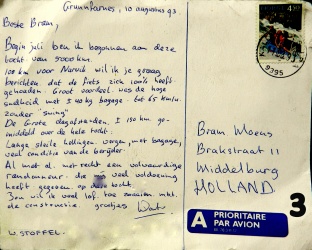 10 augustus 93.
Beste Bram,
Begin juli ben ik begonnen aan deze
tocht van 5000 km.
100 km voor Narvik wil ik je graag
berichten dat de fiets zich 100% heeft
gehouden. Groot voordeel was de hoge
snelheid met ± 40 kg bagage - tot 65 km/u.
zonder "swing"
De Grote dagafstanden. ± 130 km. ge-
middeld over de hele tocht.
Lange steile hellingen. vergen, met bagage,
veel conditie van de berijder.
Al met al. met recht een volwaardige
randonneur. die veel voldoening
heeft gegeven op de tocht.
Zou wil ik veel lof toe zwaaien mbt.
de constructie groetjes
W. STOFFEL
9395
Bram Moens
Brakstraat 11
Middelburg
HOLLAND
A PRIORITAIRE
PAR AVION
3